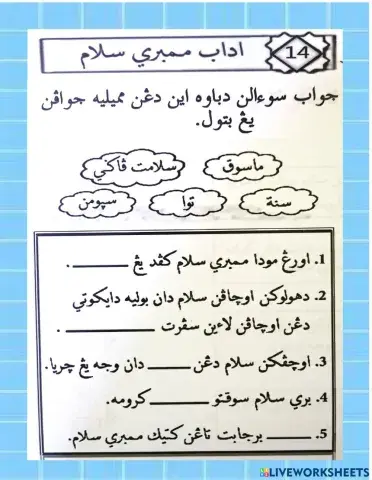 14
اداب ممبري سلام
جواب سوءالن دباوه اين دڠن مميليه جواڤن
يڠ بتول.
ماسوق
سلامت ڤاݢي
سنة
توا
سڽومن
1. اورڠ مودا ممبري سلام كڤد يڠ ______ .
2. دهولوكن اوچاڤن سلام دان بوليه دايكوتي
دڠن اوچاڤن لاءين سڤرت ______ .
3. اوچڤكن سلام دڠن ______ دان وجه يڠ چريا.
4. بري سلام سوقتو ______ كرومه.
5. ______ برجابت تاڠن كتيك ممبري سلام.
LIVEWORKSHEETS